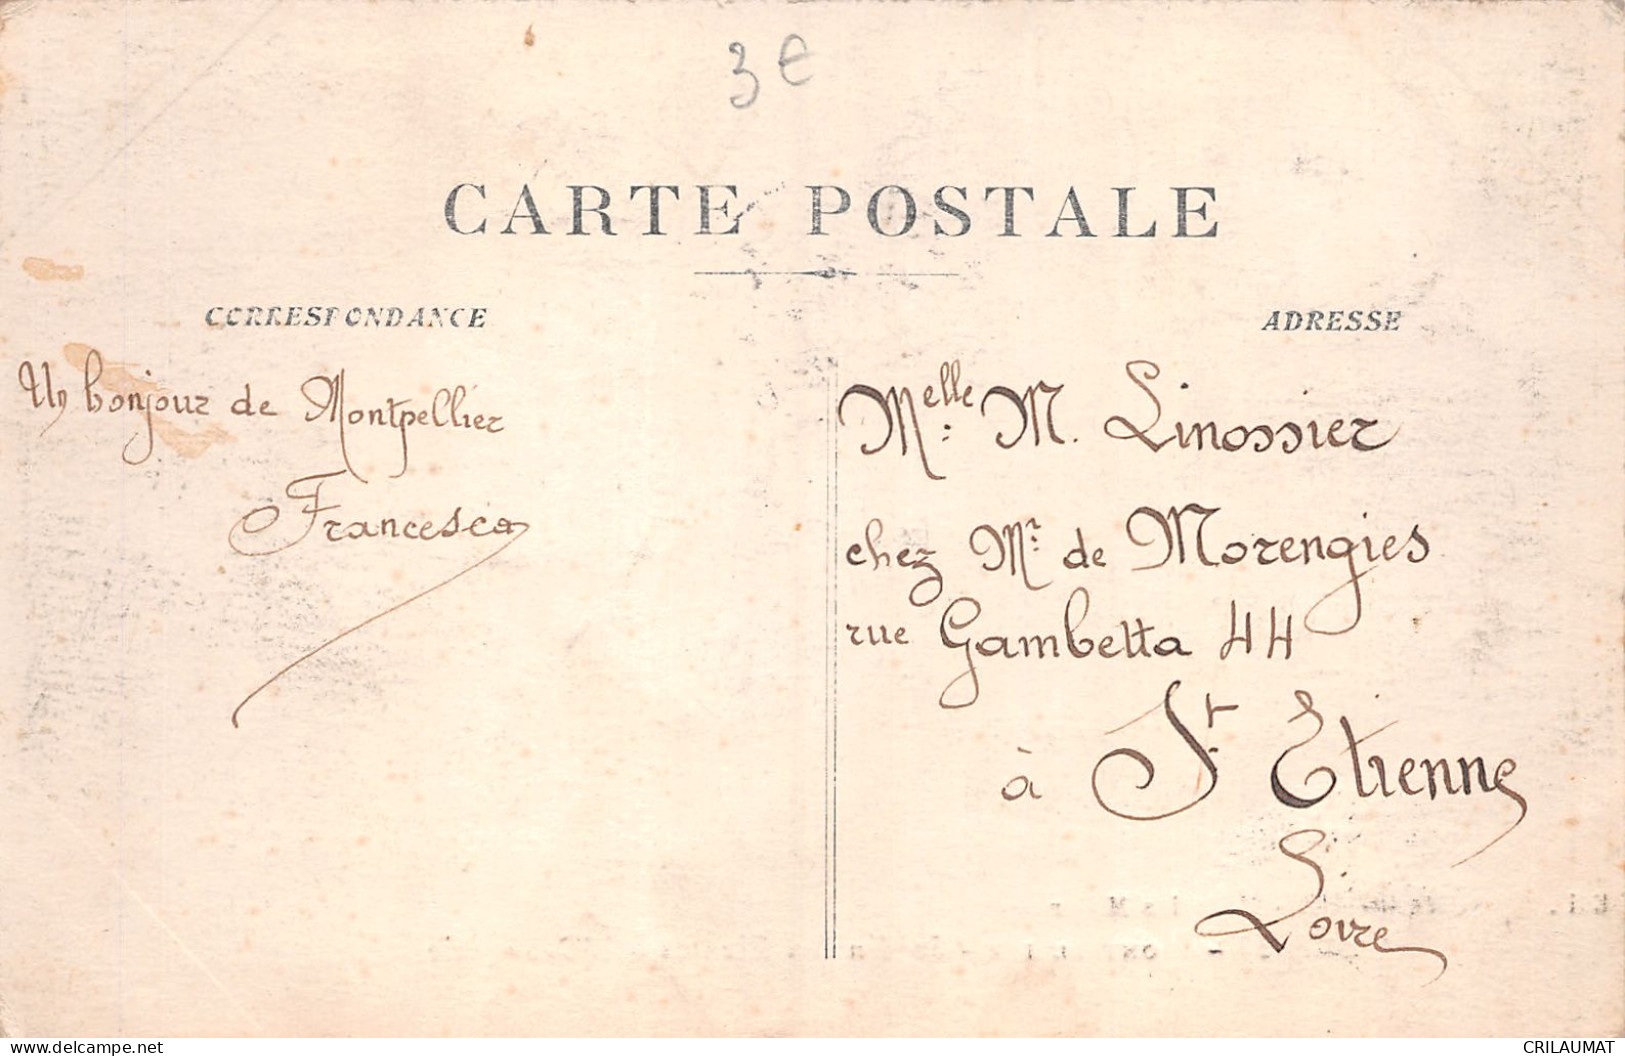 3 €
CARTE POSTALE
CORRESPONDANCE
Un bonjour de Montpellier
Francesca
ADRESSE
Melle. M. Linossier
chez Mr. de Morengies
rue Gambetta 44
à St. Etienne
Loire
delcampe.net
CRILAUMAT